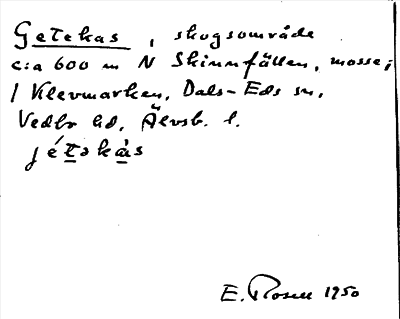 Getekas, skogsområde
c:a 600 m N Skinnfällen, mosse,
i Klevmarken, Dals-Eds sn,
Vedbo hd, Älvsb. l.
jétəkàs
E. Rosell 1950